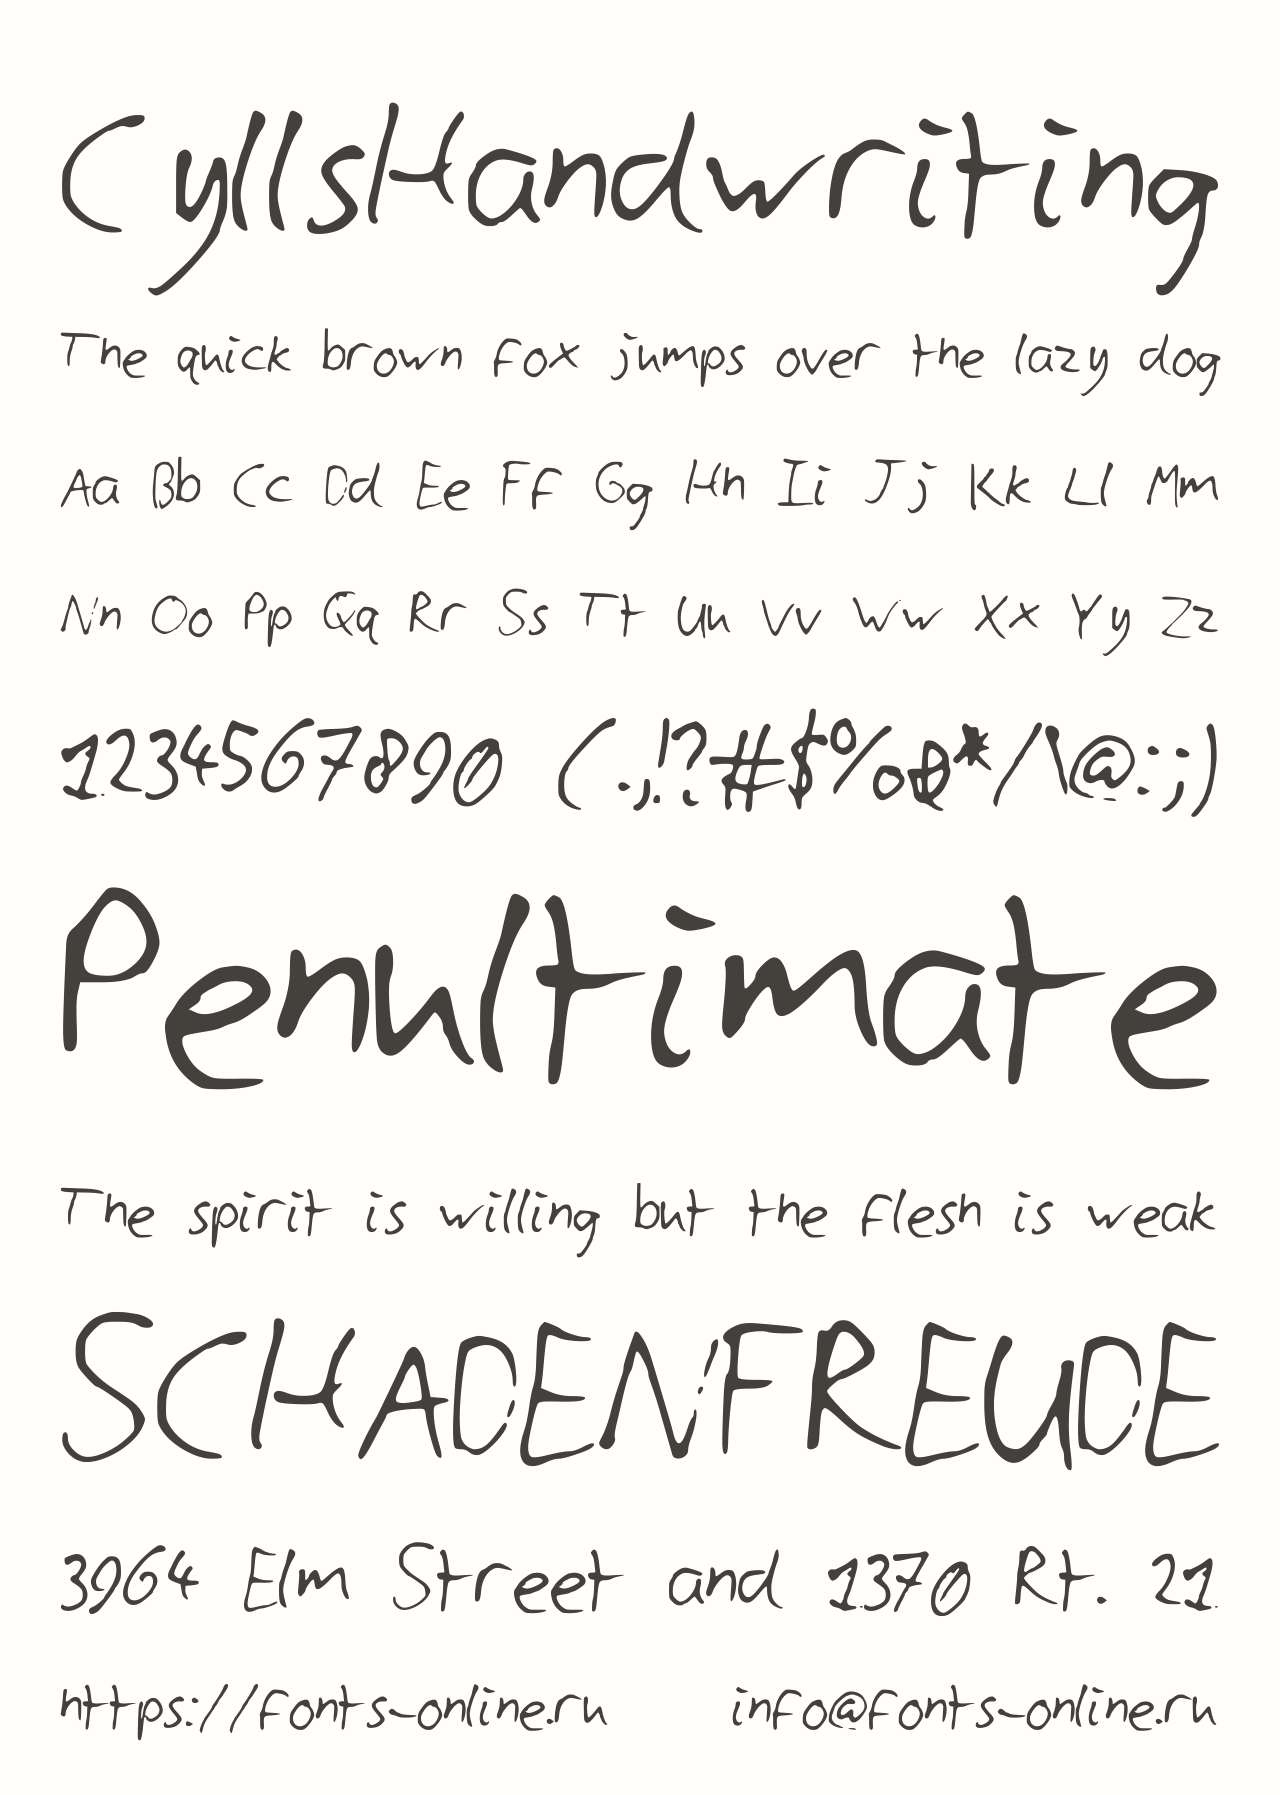 CyllsHandwriting
The quick brown fox jumps over the lazy dog
Aa Bb Cc Dd Ee Ff Gg Hh Ii Jj Kk Ll Mm
Nn Oo Pp Qq Rr Ss Tt Uu Vv Ww Xx Yy Zz
1234567890 (.,!?#$%&*/\@:;)
Penultimate
The spirit is willing but the flesh is weak
SCHADENFREUDE
3964 Elm Street and 1370 Rt. 21
https://fonts-online.ru info@fonts-online.ru